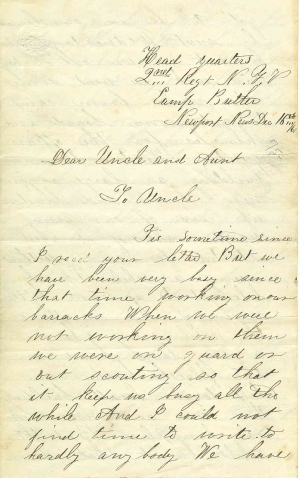 Head quarters
2nd Regt N. Y. V
Camp Butler
Newport News Dec 18th
Dear Uncle and Aunt
To Uncle
Tis sometime since
I recd your letter But we
have been very busy since
that time working on our
barracks When we were
not working on them
we were on guard or
out scouting so that
it keep us busy all the
while And I could not
find time to write to
hardly any body We have